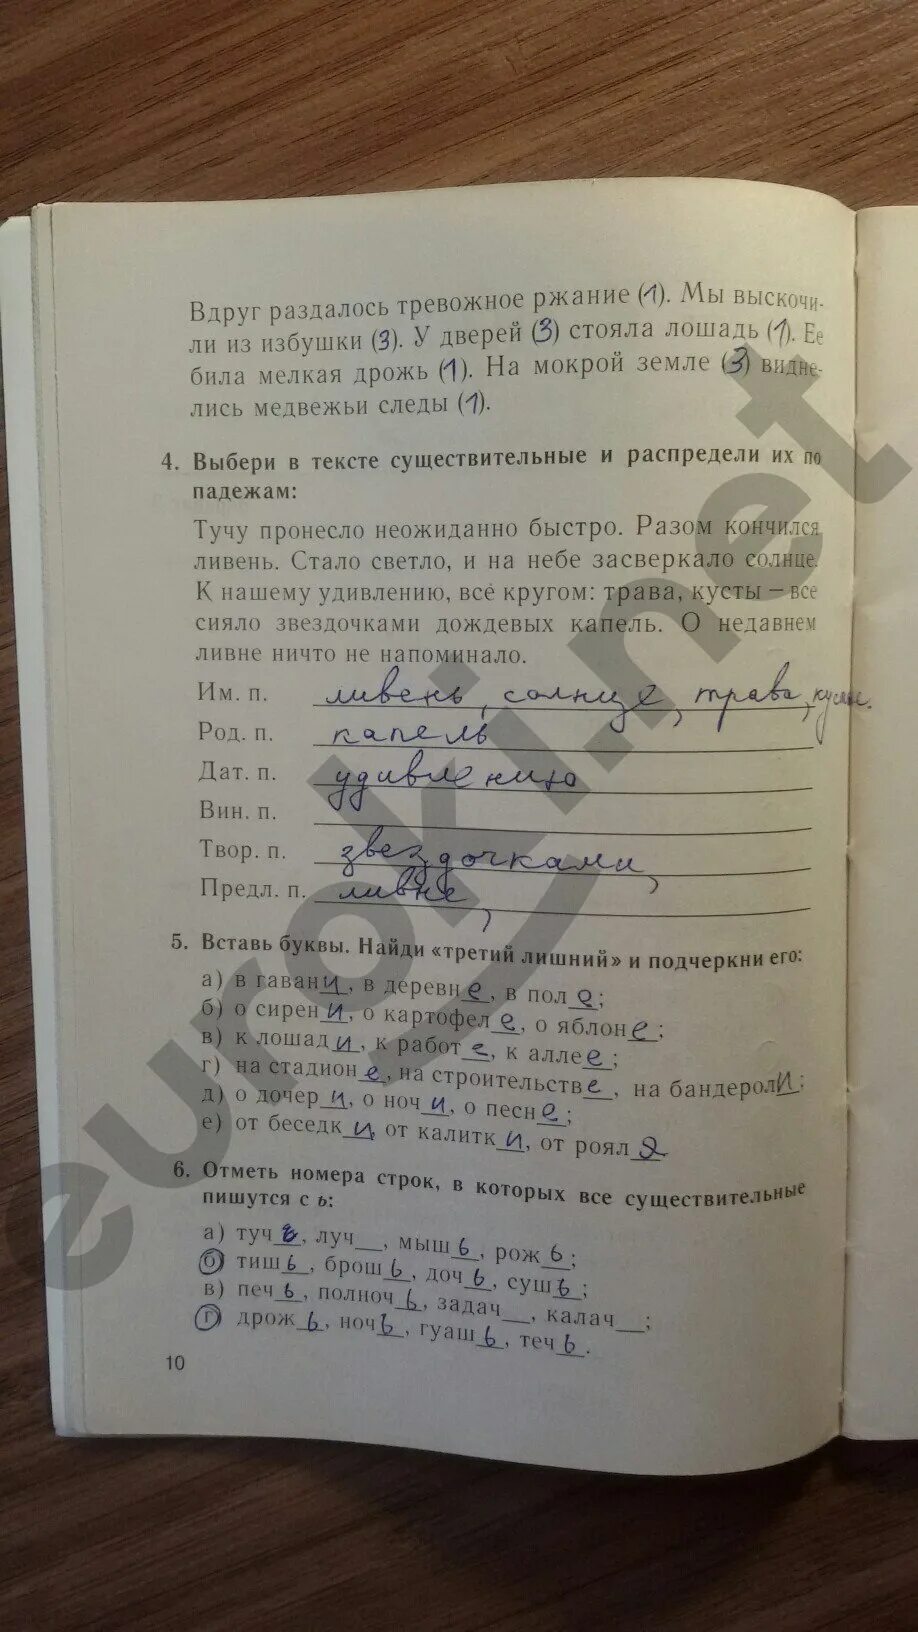 Вдруг раздалось тревожное ржание (1). Мы выскочи-
ли из избушки (3). У дверей (3) стояла лошадь (1). Ее
била мелкая дрожь (1). На мокрой земле (3) видне-
лись медвежьи следы (1).
4. Выбери в тексте существительные и распредели их по
падежам:
Тучу пронесло неожиданно быстро. Разом кончился
ливень. Стало светло, и на небе засверкало солнце.
К нашему удивлению, все кругом: трава, кусты – все
сияло звездочками дождевых капель. О недавнем
ливне ничто не напоминало.
Им. п. ливень, солнце, трава, кусты.
Род. п. капель
Дат. п. удивлению
Вин. п.
Твор. п. звездочками,
Предл. п. ливне,
5. Вставь буквы. Найди «третий лишний» и подчеркни его:
а) в гавани, в деревне, в поле;
б) о сирени, о картофеле, о яблоне;
в) к лошади, к работе, к аллее;
г) на стадионе, на строительстве, на бандероли;
д) о дочери, о ночи, о песне;
е) от беседки, от калитки, от рояля
6. Отметь номера строк, в которых все существительные
пишутся с ь:
а) туч_, луч__, мышь, рожь;
б) тишь, брошь, дочь, сушь;
в) печь, полночь, задач__, калач__;
г) дрожь, ночь, гуашь, течь.
10
euroki.net